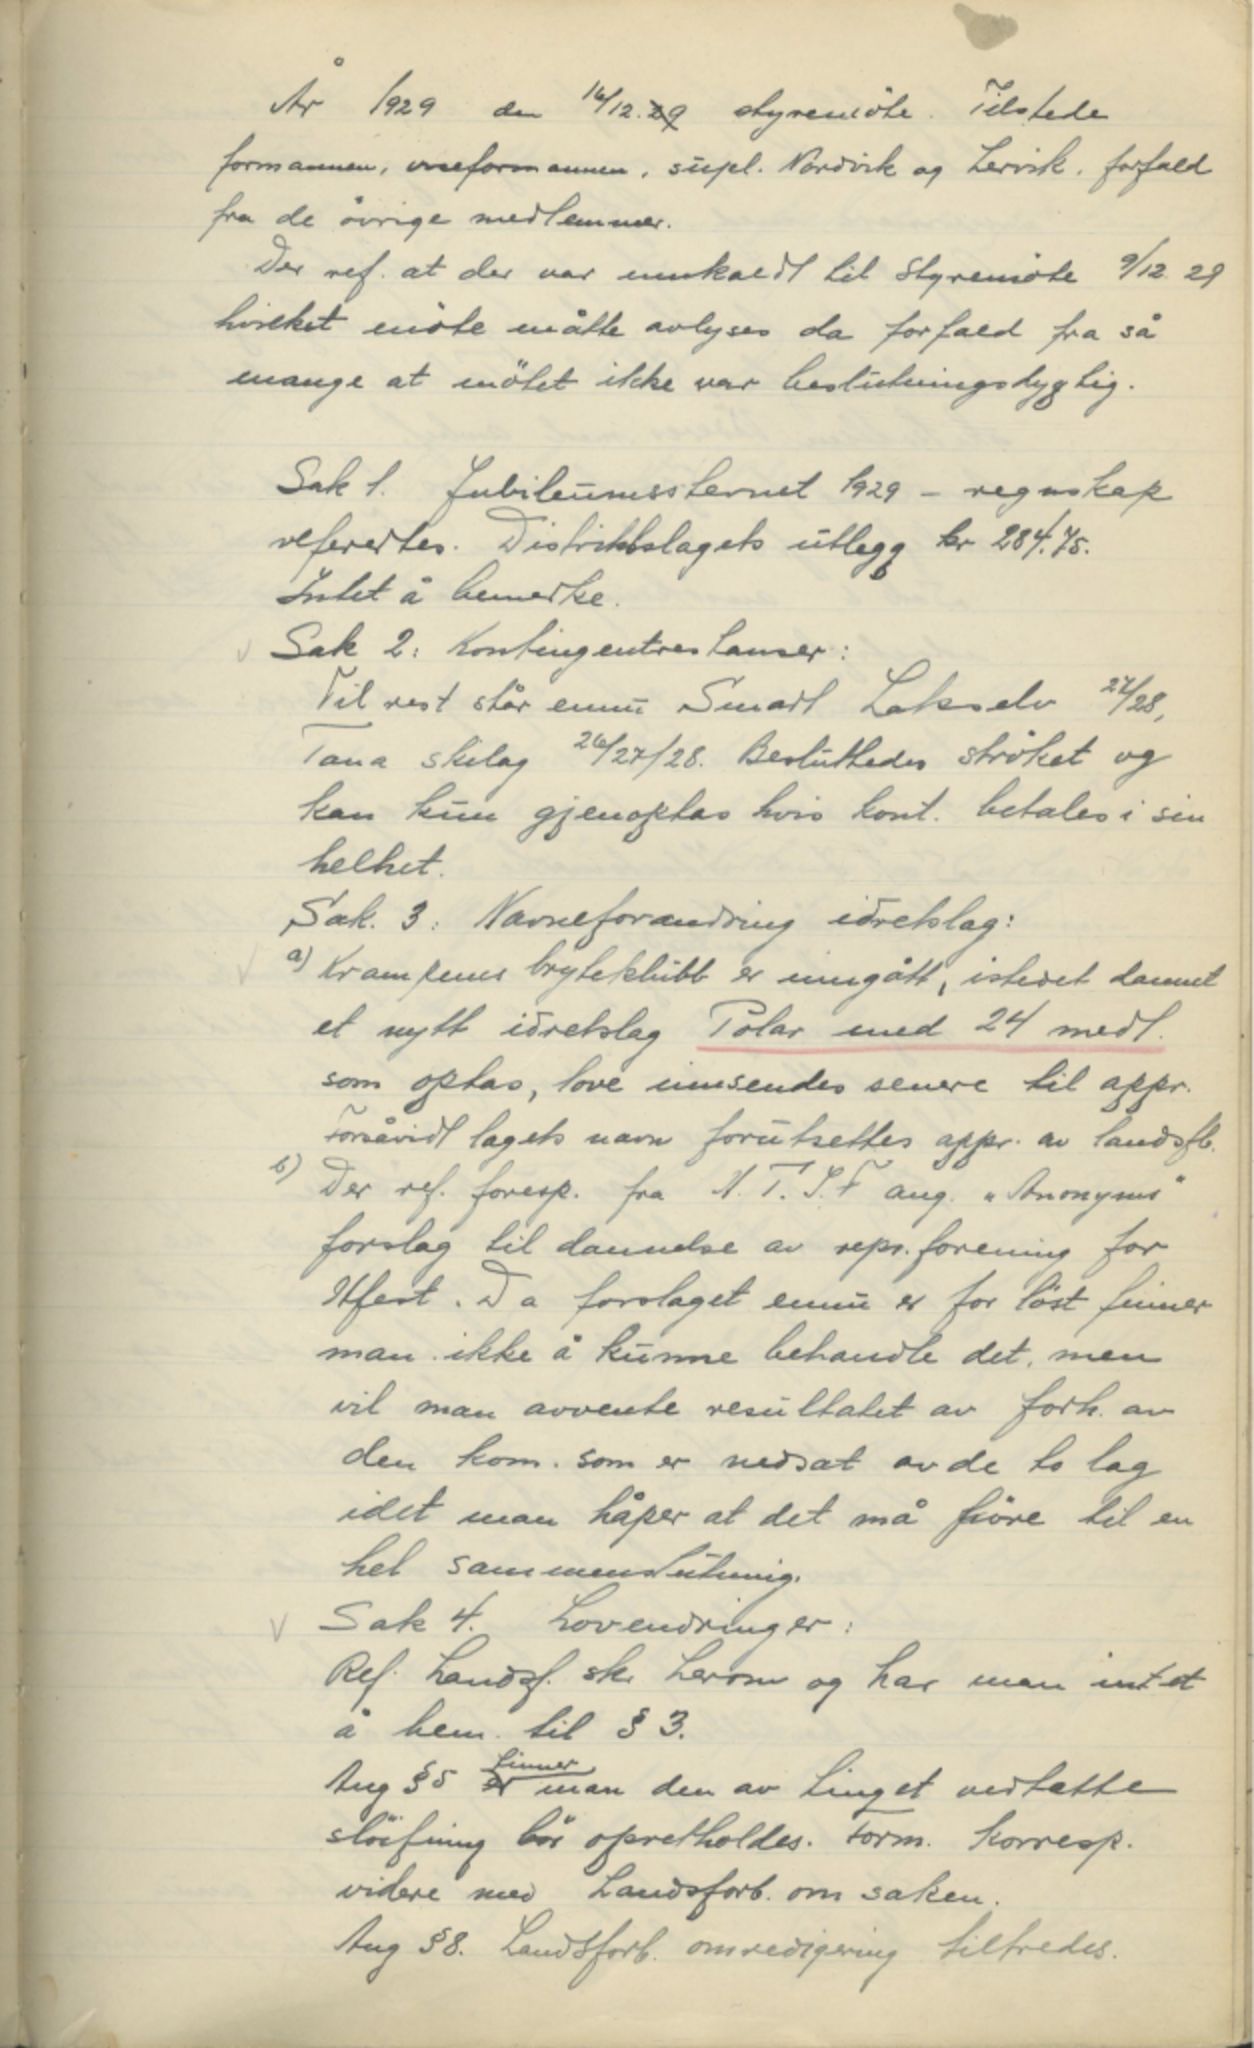 År 1929 den 16/12.29 styremöte. Tilstede
formannen, viseformannen, supl. Nordvik og Lervik. forfald
fra de övrige medlemmer.
Der ref. at der var innkaldt til Styremöte 9/12 29
hvilket möte måtte avlyses da forfald fra så
mange at mötet ikke var beslutningsdygtig.
Sak 1. Jubileumsstevnet 1929 – regnskap
referertes. Distriktslagets utlegg kr 284.75.
Intet å bemerke.
Sak 2: Kontingentrestanser:
Til rest står ennu Smart Lakselv 27/28,
Tana skilag 26/27/28. Besluttedes ströket og
kan kun gjenoptas hvis kont. betales i sin
helhet.
Sak. 3: Navneforandring idretslag:
a) Krampenes bryteklubb er inngått, istedet dannet
et nytt idretslag Polar med 24 medl.
som optas, love innsendes senere til appr.
Forsåvidt lagets navn forutsettes appr. av landsfb.
b) Der ref. foresp. fra N.T.I.F ang. „Anonyms"
forslag til dannelse av repr.forening for
Hfest. Da forslaget ennu er for löst finner
man ikke å kunne behandle det, men
vil man avvente resultatet av forh. av
den kom. som er nedsat av de to lag
idet man håper at det må före til en
hel sammenslutning.
Sak 4. Lovendringer:
Ref. Landsf. skr. herom og har man intet
å bem. til § 3.
Ang § 5 finner man den av tinget vedtatte
slöifning bör opretholdes. Form. korresp.
videre med Landsforb. om saken.
Ang § 8. Landsforb. omredigering tiltredes.